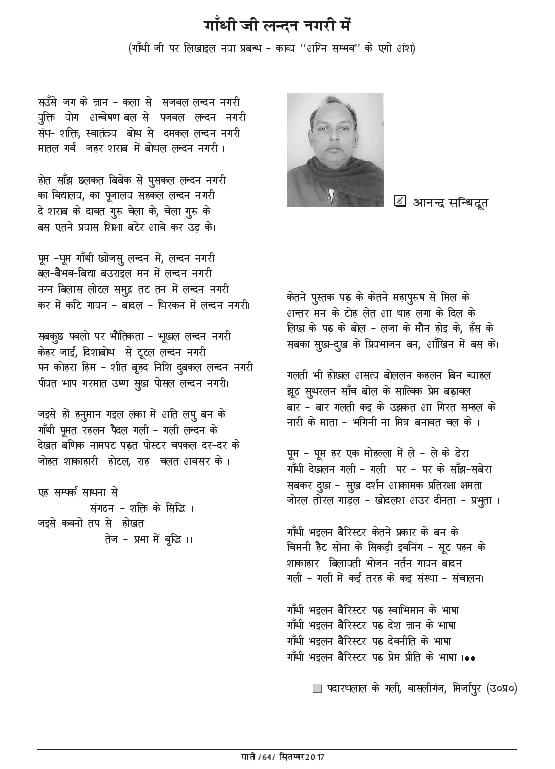 गाँधी जी लन्दन नगरी में
(गाँधी जी पर लिखाइल नया प्रबन्ध - काव्य "अग्नि सम्भव" के एगो अंश)
सउँसे जग के ज्ञान - कला से सजबल लन्दन नगरी
युक्ति योग अन्वेषण बल से पजबल लन्दन नगरी
संघ- शक्ति, स्वातंत्र्य बोध से दमकल लन्दन नगरी
मातल गर्व जहर शराब में बोथल लन्दन नगरी ।
होत साँझ छलकत बिबेक से घुसकल लन्दन नगरी
का विद्यालय, का पूजालय सहकल लन्दन नगरी
दे शराब के दावत गुरु चेला के, चेला गुरु के
बस एतने प्रयास शिक्षा बटेर आवे कर उड़ के।
घूम -घूम गाँधी खोजसु लन्दन में, लन्दन नगरी
बल-बैभव-बिद्या बउराइल मन में लन्दन नगरी
नग्न बिलास लोटल समुद्र तट तन में लन्दन नगरी
कर में कटि गायन - बादल - थिरकन में लन्दन नगरी।
सबकुछ पवलो पर भौतिकता - भूखल लन्दन नगरी
केहर जाई, दिशाबोध से टूटल लन्दन नगरी
घन कोहरा हिम - शीत बृहद निशि दुबकल लन्दन नगरी
पीयत भाप गरमात उष्ण सुख पोसल लन्दन नगरी।
जइसे हो हनुमान गइल लंका में अति लघु बन के
गाँधी घूमत रहलन पैदल गली - गली लन्दन के
देखत बणिक नामपट पढ़त पोस्टर चपकल दर-दर के
जोहत शाकाहारी होटल, राह चलत अवसर के ।
एह सम्पर्क साधना से
संगठन - शक्ति के सिद्धि ।
जइसे कवनो तप से होखत
तेज - प्रभा में बृद्धि ।।
आनन्द सन्धिदूत
केतने पुस्तक पढ़ के केतने महापुरुष से मिल के
अन्तर मन के टोह लेत आ थाह लगा के दिल के
लिख के पढ़ के बोल - लजा के मौन होइ के, हँस के
सबका सुख-दुख के प्रियभाजन बन, आँखिन में बस के।
गलती भी होखल असत्य बोललन कहलन बिन ब्याहल
झूठ सुधरलन साँच बोल के सात्विक प्रेम बढ़ावल
बार - बार गलती कइ के उझकत आ गिरत सम्हल के
नारी के माता - भगिनी ना मित्र बनावत चल के ।
घूम - घूम हर एक मोहल्ला में ले - ले के डेरा
गाँधी देखलन गली - गली घर - घर के साँझ-सबेरा
सबकर दुख - सुख दर्शन आक्रामक प्रतिरक्षा क्षमता
जोरल तोरल गाड़ल - खोदलश अउर दीनता - प्रभुता ।
गाँधी भइलन बैरिस्टर केतने प्रकार के बन के
चिमनी हैट सोना के सिकड़ी इवनिंग - सूट पहन के
शाकाहार बिलायती भोजन नर्तन गायन बादन
गली - गली में कई तरह के कइ संस्था - संचालन।
गाँधी भइलन बैरिस्टर पढ़ स्वाभिमान के भाषा
गाँधी भइलन बैरिस्टर पढ़ देश ज्ञान के भाषा
गाँधी भइलन बैरिस्टर पढ़ देवनीति के भाषा
गाँधी भइलन बैरिस्टर पढ़ प्रेम प्रीति के भाषा ।●●
पदारथलाल के गली, वासलीगंज, मिर्जापुर (उ०प्र०)
पाती /64/ सितम्बर 2017